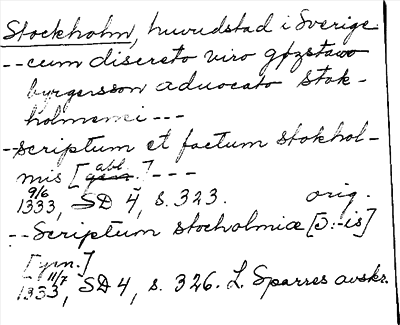 Stockholm, huvudstad i Sverige
-- cum discreto viro gøzstavo
byrgersson aduocato stok-
holmensi ---
- scriptum et factum stokhol-
mis [abl.] ---
9/6
1333, SD 4, s. 323. orig.
-- Scriptum stocholmiæ [ɔ: -is]
[gen.]
11/7
1333, SD 4, s. 326. L. Sparres avskr.